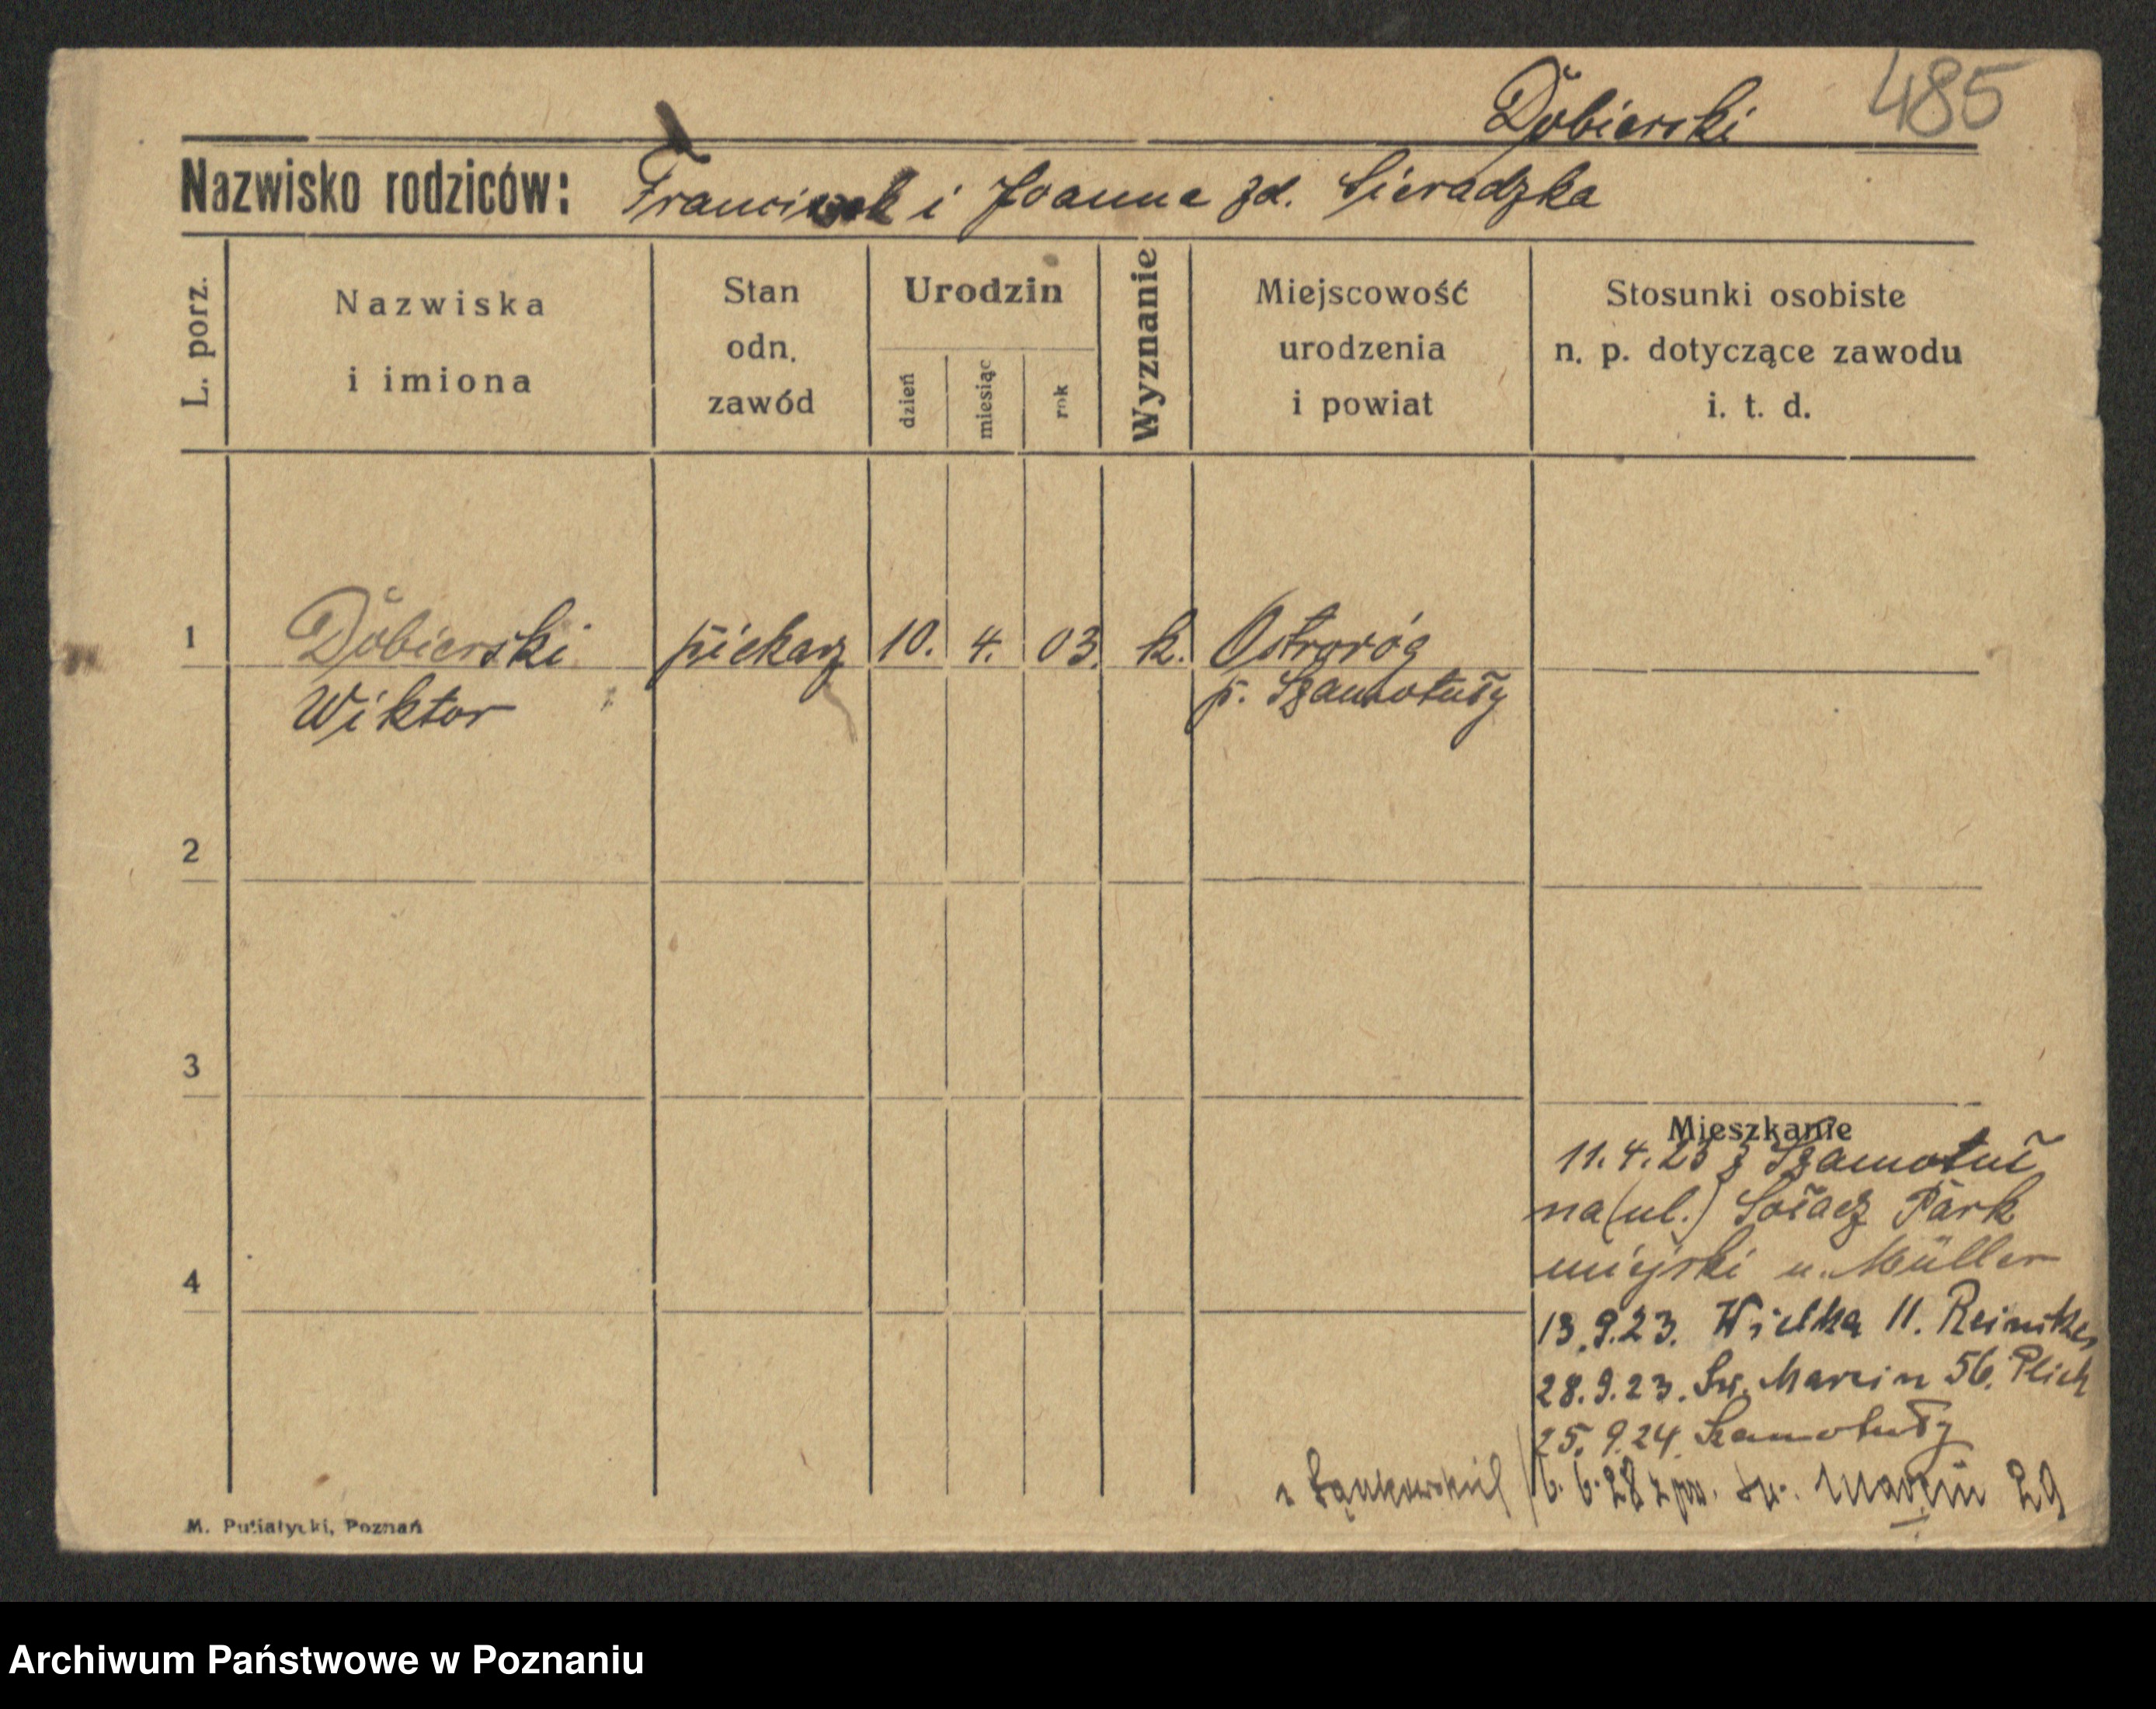 Dŏbierski 485
Nazwisko rodziców: Franciszek i Joanna zd. Sieradzka
L. porz.
Nazwiska
i imiona
Stan
odn.
zawód
Urodzin
dzień
miesiąc
rok
Wyznanie
Miejscowość
urodzenia
i powiat
Stosunki osobiste
n. p. dotyczące zawodu
i. t. d.
1 Dŏbierski piekarz 10. 4. 03. k. Ostroróg
Wiktor p. Szamotuły
2
3
4
Mieszkanie
11.4.23 z Szamotuł
na (ul.) Sołacz Park
miejski u. Müller
13.9.23. Wielka 11.
28.9.23. Św. Marcin 56.
25.9.24. Szamotuły
6.6.28 z pow. św. Marcin 29
M. Putiatycki, Poznań
Archiwum Państwowe w Poznaniu